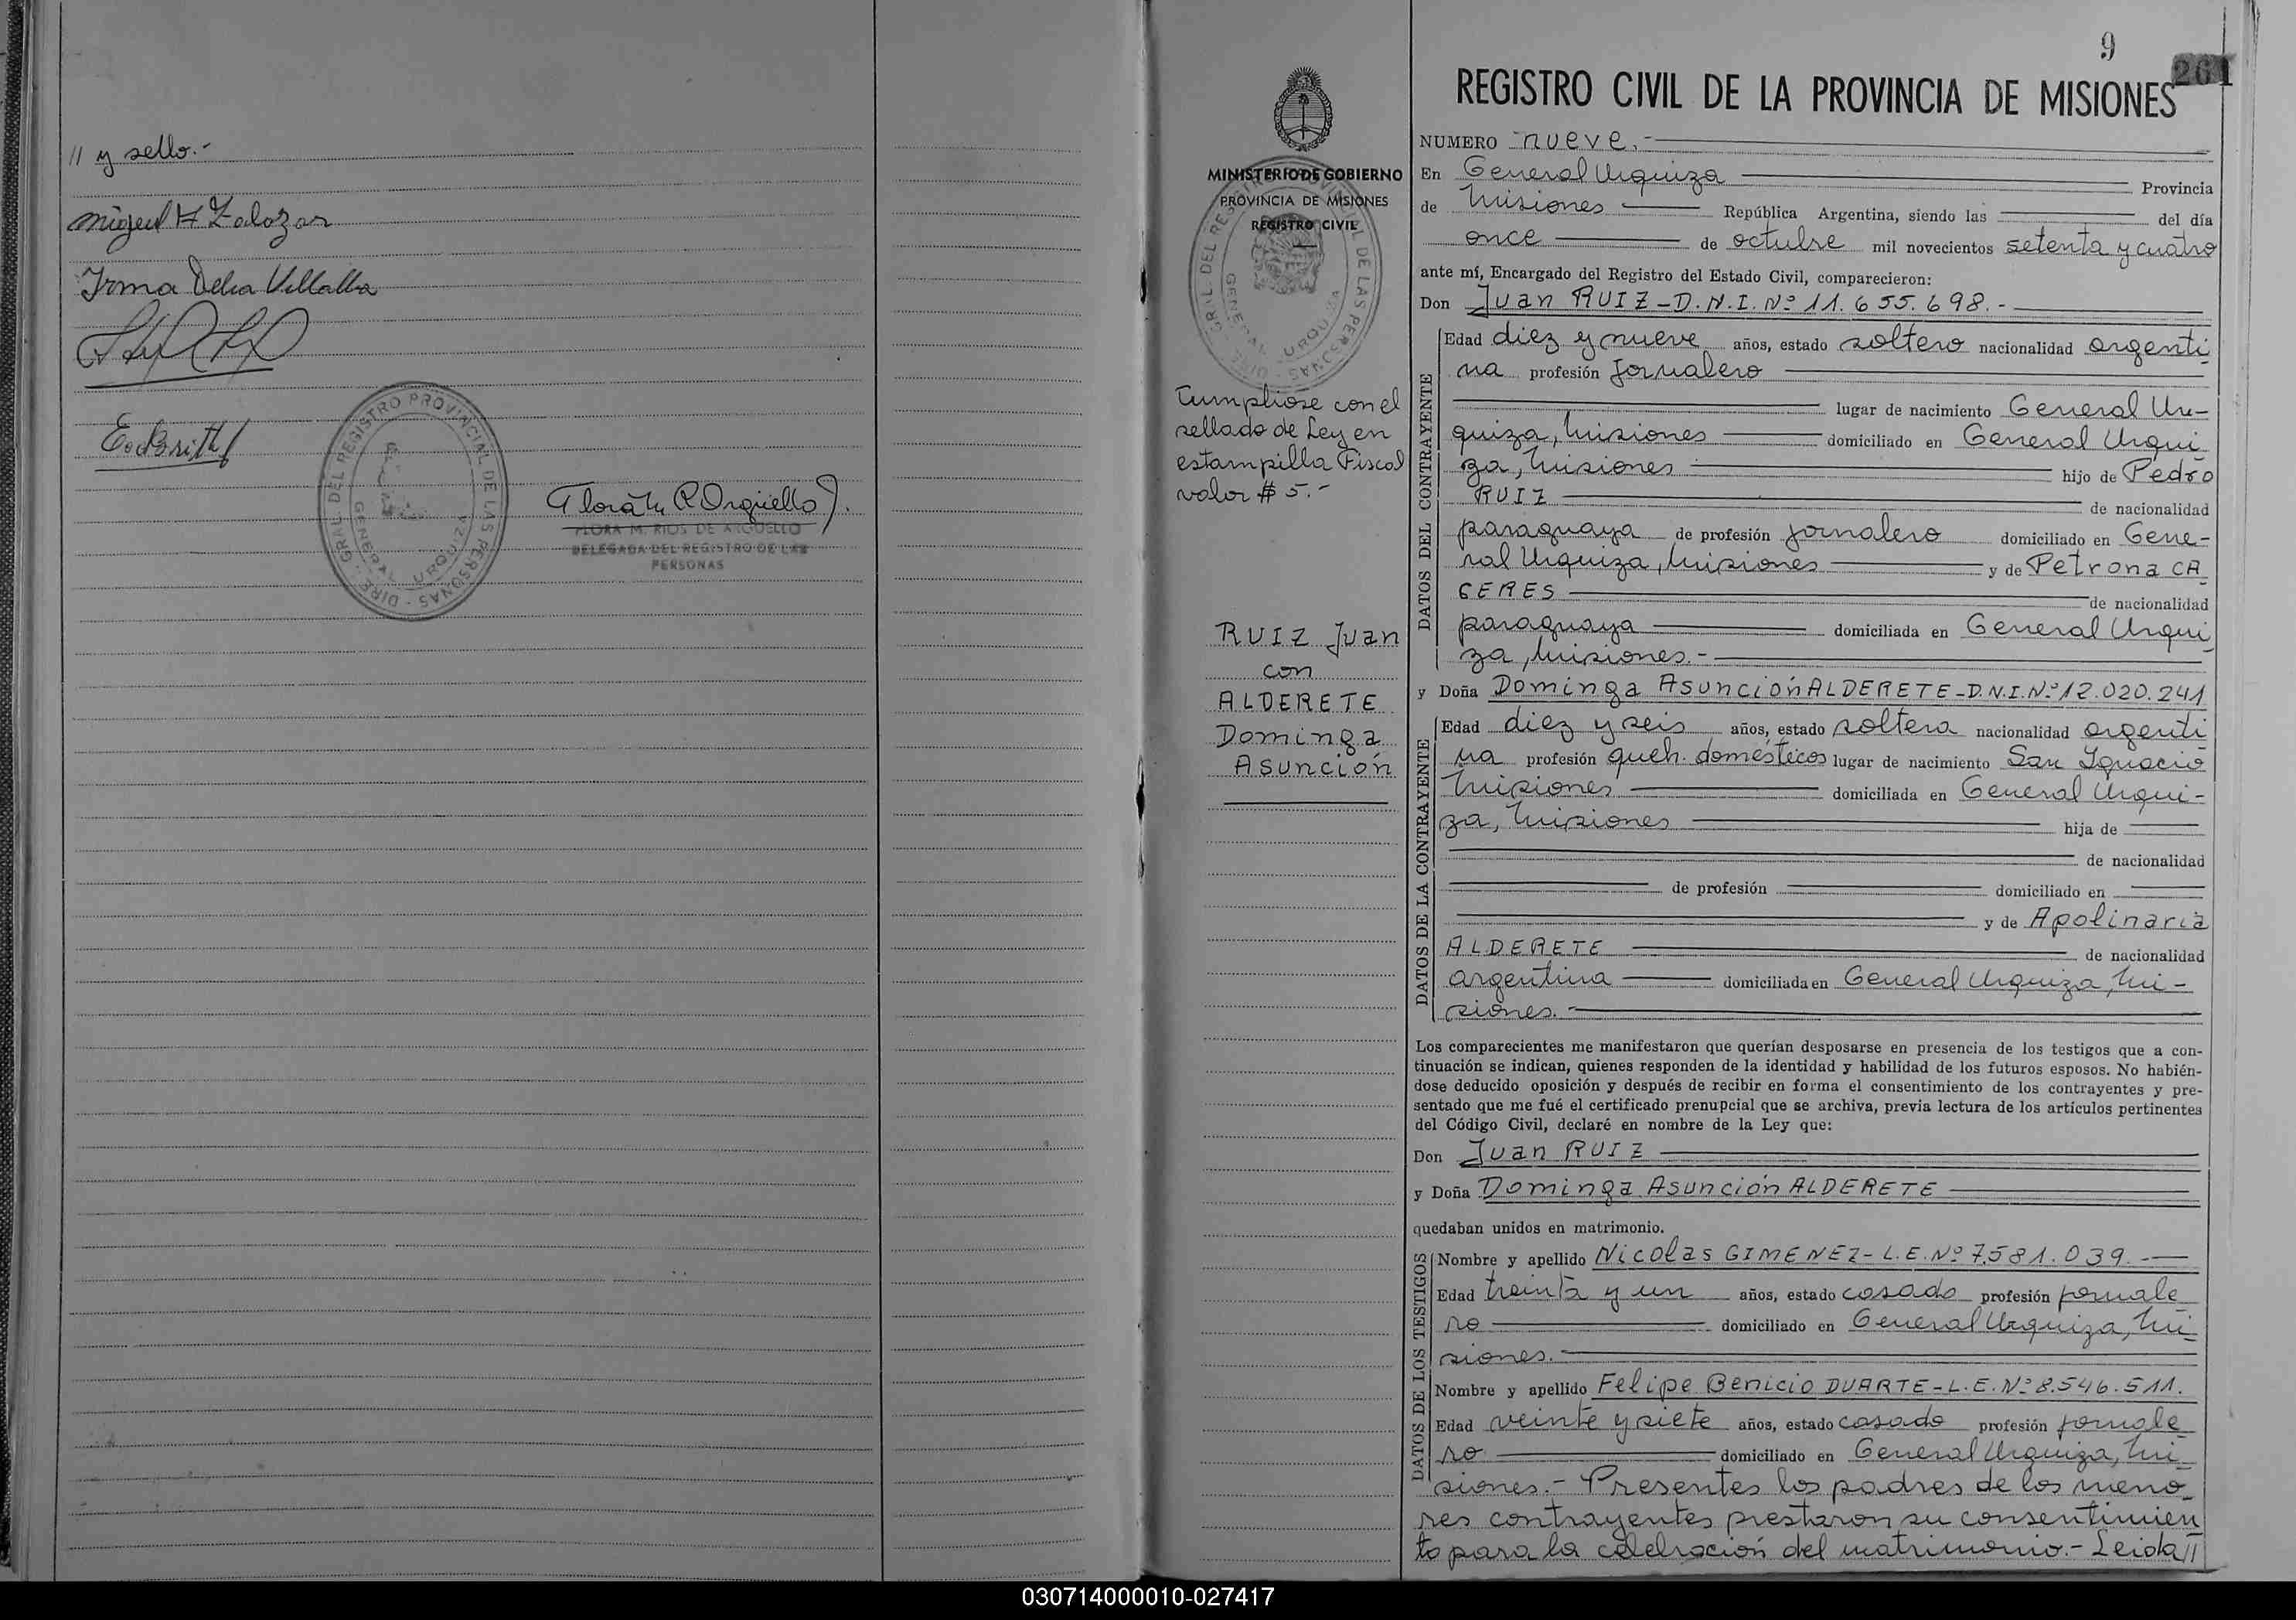 // y sello.-
Miguel H Zalazar
Irma Delia Villalba
DIRE. GRAL. DEL REGISTRO PROVINCIAL DE LAS PERSONAS -
GENERAL URQUIZA
FLORA M. RIOS DE ARGUELLO
DELEGADA DEL REGISTRO DE LAS
PERSONAS
MINISTERIO DE GOBIERNO
PROVINCIA DE MISIONES
REGISTRO CIVIL
DIRE. GRAL. DEL REGISTRO PROVINCIAL DE LAS PERSONAS -
GENERAL URQUIZA
Cumplióse con el
sellado de Ley en
estampilla Fiscal
valor $ 5.-
RUIZ Juan
con
ALDERETE
Dominga
Asunción
9
261
REGISTRO CIVIL DE LA PROVINCIA DE MISIONES
NUMERO -nueve.-
En General Urquiza Provincia
de Misiones República Argentina, siendo las del día
once de octubre mil novecientos setenta y cuatro
ante mí, Encargado del Registro del Estado Civil, comparecieron:
Don Juan RUIZ-D.N.I.Nº 11.655.698.-
DATOS DEL CONTRAYENTE
Edad diez y nueve años, estado soltero nacionalidad argenti
na profesión Jornalero
lugar de nacimiento General Ur-
quiza, Misiones domiciliado en General Urqui
za, Misiones hijo de Pedro
RUIZ de nacionalidad
paraguaya de profesión jornalero domiciliado en Gene-
ral Urquiza, Misiones y de Petrona CA
CERES de nacionalidad
paraguaya domiciliada en General Urqui
za, Misiones.-
y Doña Dominga Asunción ALDERETE-D.N.I.Nº 12.020.241
DATOS DE LA CONTRAYENTE
Edad diez y seis años, estado soltera nacionalidad argenti
na profesión queh. domésticos lugar de nacimiento San Ignacio
Misiones domiciliada en General Urqui-
za, Misiones hija de
de nacionalidad
de profesión domiciliado en
y de Apolinaria
ALDERETE de nacionalidad
argentina domiciliada en General Urquiza, Mi-
siones.-
Los comparecientes me manifestaron que querían desposarse en presencia de los testigos que a con-
tinuación se indican, quienes responden de la identidad y habilidad de los futuros esposos. No habién-
dose deducido oposición y después de recibir en forma el consentimiento de los contrayentes y pre-
sentado que me fué el certificado prenupcial que se archiva, previa lectura de los artículos pertinentes
del Código Civil, declaré en nombre de la Ley que:
Don Juan RUIZ
y Doña Dominga Asunción ALDERETE
quedaban unidos en matrimonio.
DATOS DE LOS TESTIGOS
Nombre y apellido Nicolas GIMENEZ-L.E.Nº 7.581.039.-
Edad treinta y un años, estado casado profesión jornale
ro domiciliado en General Urquiza, Mi
siones.-
Nombre y apellido Felipe Benicio DUARTE-L.E.Nº 8.546.511.
Edad veinte y siete años, estado casado profesión jornale
ro domiciliado en General Urquiza, Mi
siones.- Presentes los padres de los meno
res contrayentes prestaron su consentimien
to para la celebración del matrimonio.- Leida //
030714000010-027417